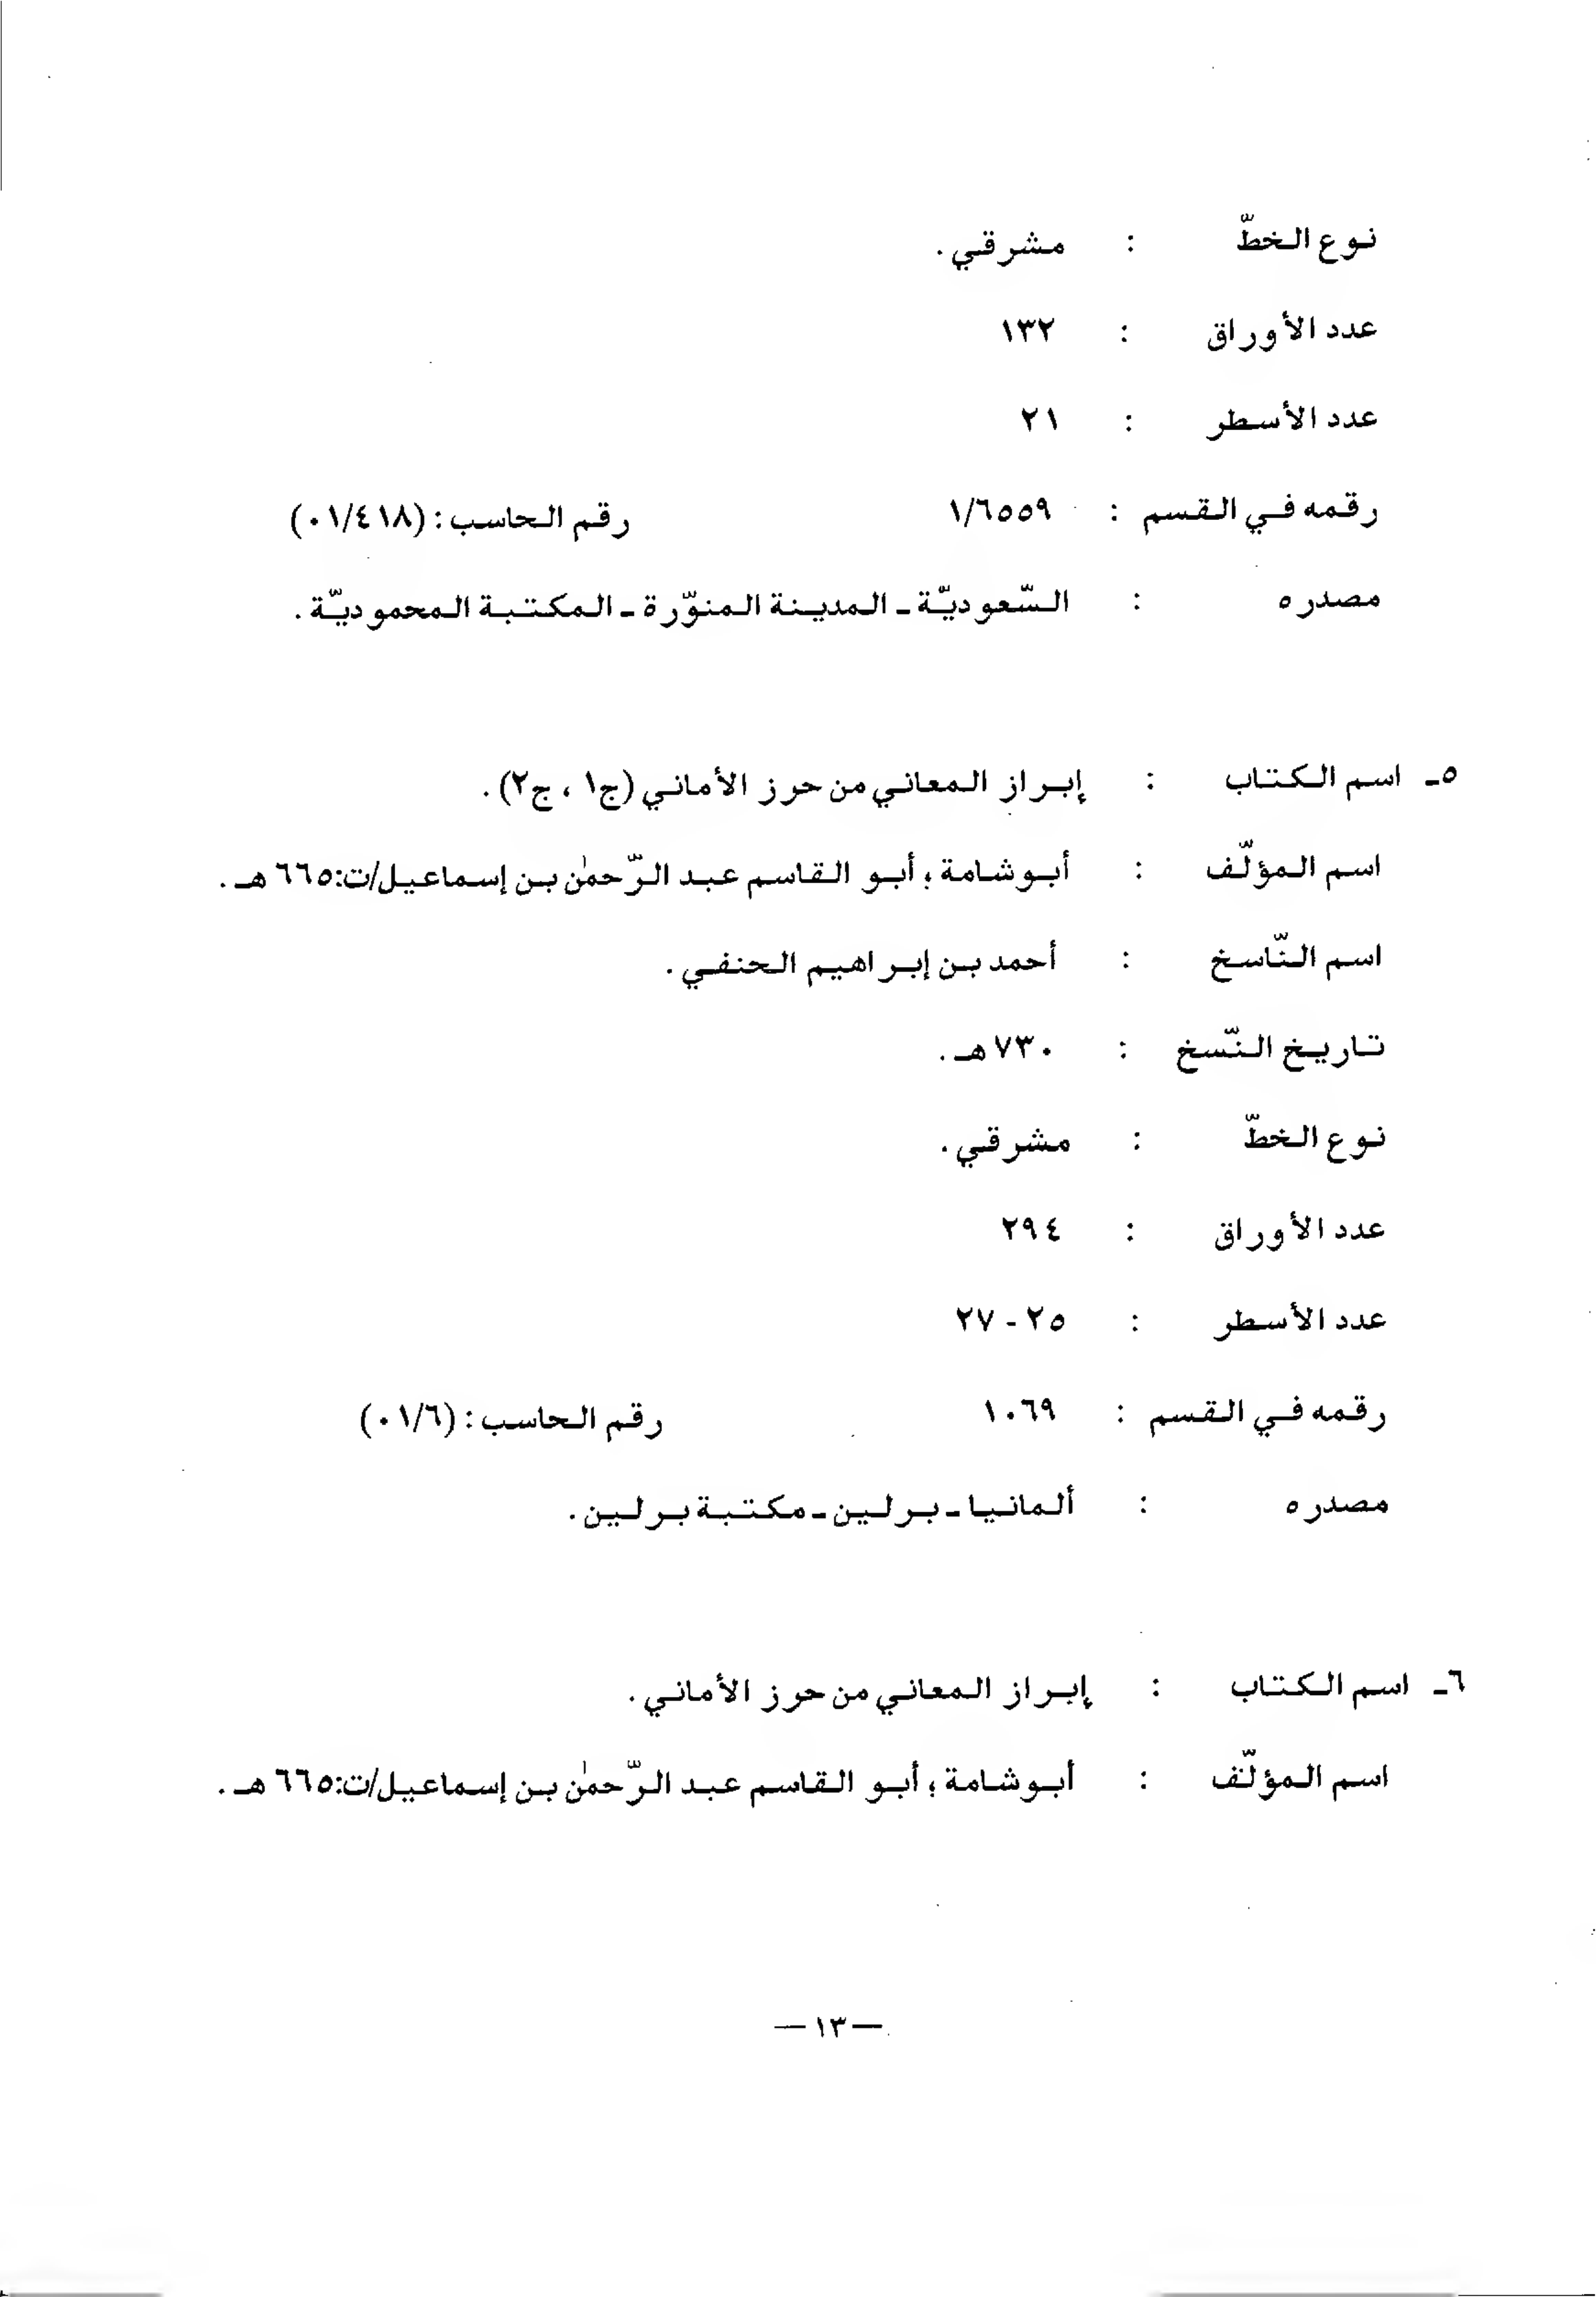 نوع الخطّ : مشرقي .
عدد الأوراق : ١٣٢
عدد الأسطر : ٢١
رقمه في القسم : ١/٦٥٥٩ رقم الحاسب : (٠١/٤١٨)
مصدره : السّعوديّة ـ المدينة المنوّرة ـ المكتبة المحموديّة .
٥ـ اسم الكتاب : إبراز المعاني من حرز الأماني (ج١ ، ج٢) .
اسم المؤلّف : أبو شامة ؛ أبو القاسم عبد الرّحمٰن بن إسماعيل/ت:٦٦٥هـ .
اسم النّاسخ : أحمد بن إبراهيم الحنفي .
تاريخ النّسخ : ٧٣٠هـ .
نوع الخطّ : مشرقي .
عدد الأوراق : ٢٩٤
عدد الأسطر : ٢٥ - ٢٧
رقمه في القسم : ١٠٦٩ رقم الحاسب : (٠١/٦)
مصدره : ألمانيا ـ برلين ـ مكتبة برلين .
٦ـ اسم الكتاب : إبراز المعاني من حرز الأماني .
اسم المؤلّف : أبو شامة ؛ أبو القاسم عبد الرّحمٰن بن إسماعيل/ت:٦٦٥هـ .
— ١٣ —